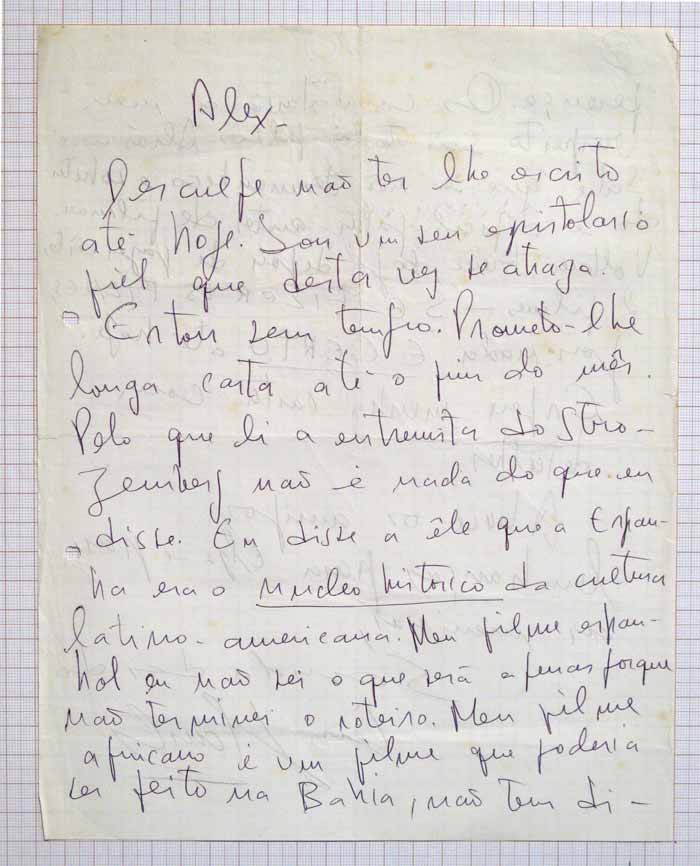 Alex -
Desculpe não ter lhe escrito
até hoje. Sou um seu epistolario
fiel que desta vez se atraza.
Estou sem tempo. Prometo-lhe
longa carta até o fim do mês.
Pelo que li a entrevista do Stro-
zemberg não é nada do que eu
disse. Eu disse a êle que a Espan-
ha era o nucleo historico da cultura
latino-americana. Meu filme espan-
hol eu não sei o que será apenas porque
não terminei o roteiro. Meu filme
africano é um filme que poderia
ser feito na Bahia, não tem di-